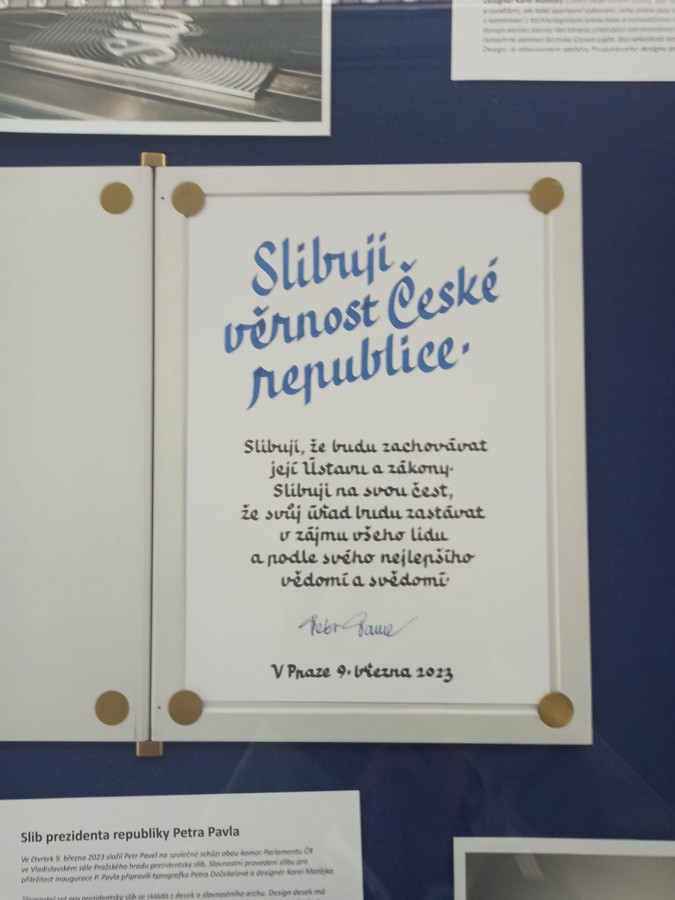 Slibuji
věrnost České
republice.
Slibuji, že budu zachovávat
její Ústavu a zákony.
Slibuji na svou čest,
že svůj úřad budu zastávat
v zájmu všeho lidu
a podle svého nejlepšího
vědomí a svědomí.
Petr Pavel
V Praze 9. března 2023
Slib prezidenta republiky Petra Pavla
Ve čtvrtek 9. března 2023 složil Petr Pavel na společné schůzi obou komor Parlamentu ČR
ve Vladislavském sále Pražského hradu prezidentský slib. Slavnostní provedení slibu pro
příležitost inaugurace P. Pavla připravili typografka Petra Dočekalová a designér Karel Matějka.
Slavnostní set pro prezidentský slib se skládá z desek a slavnostního archu. Design desek má